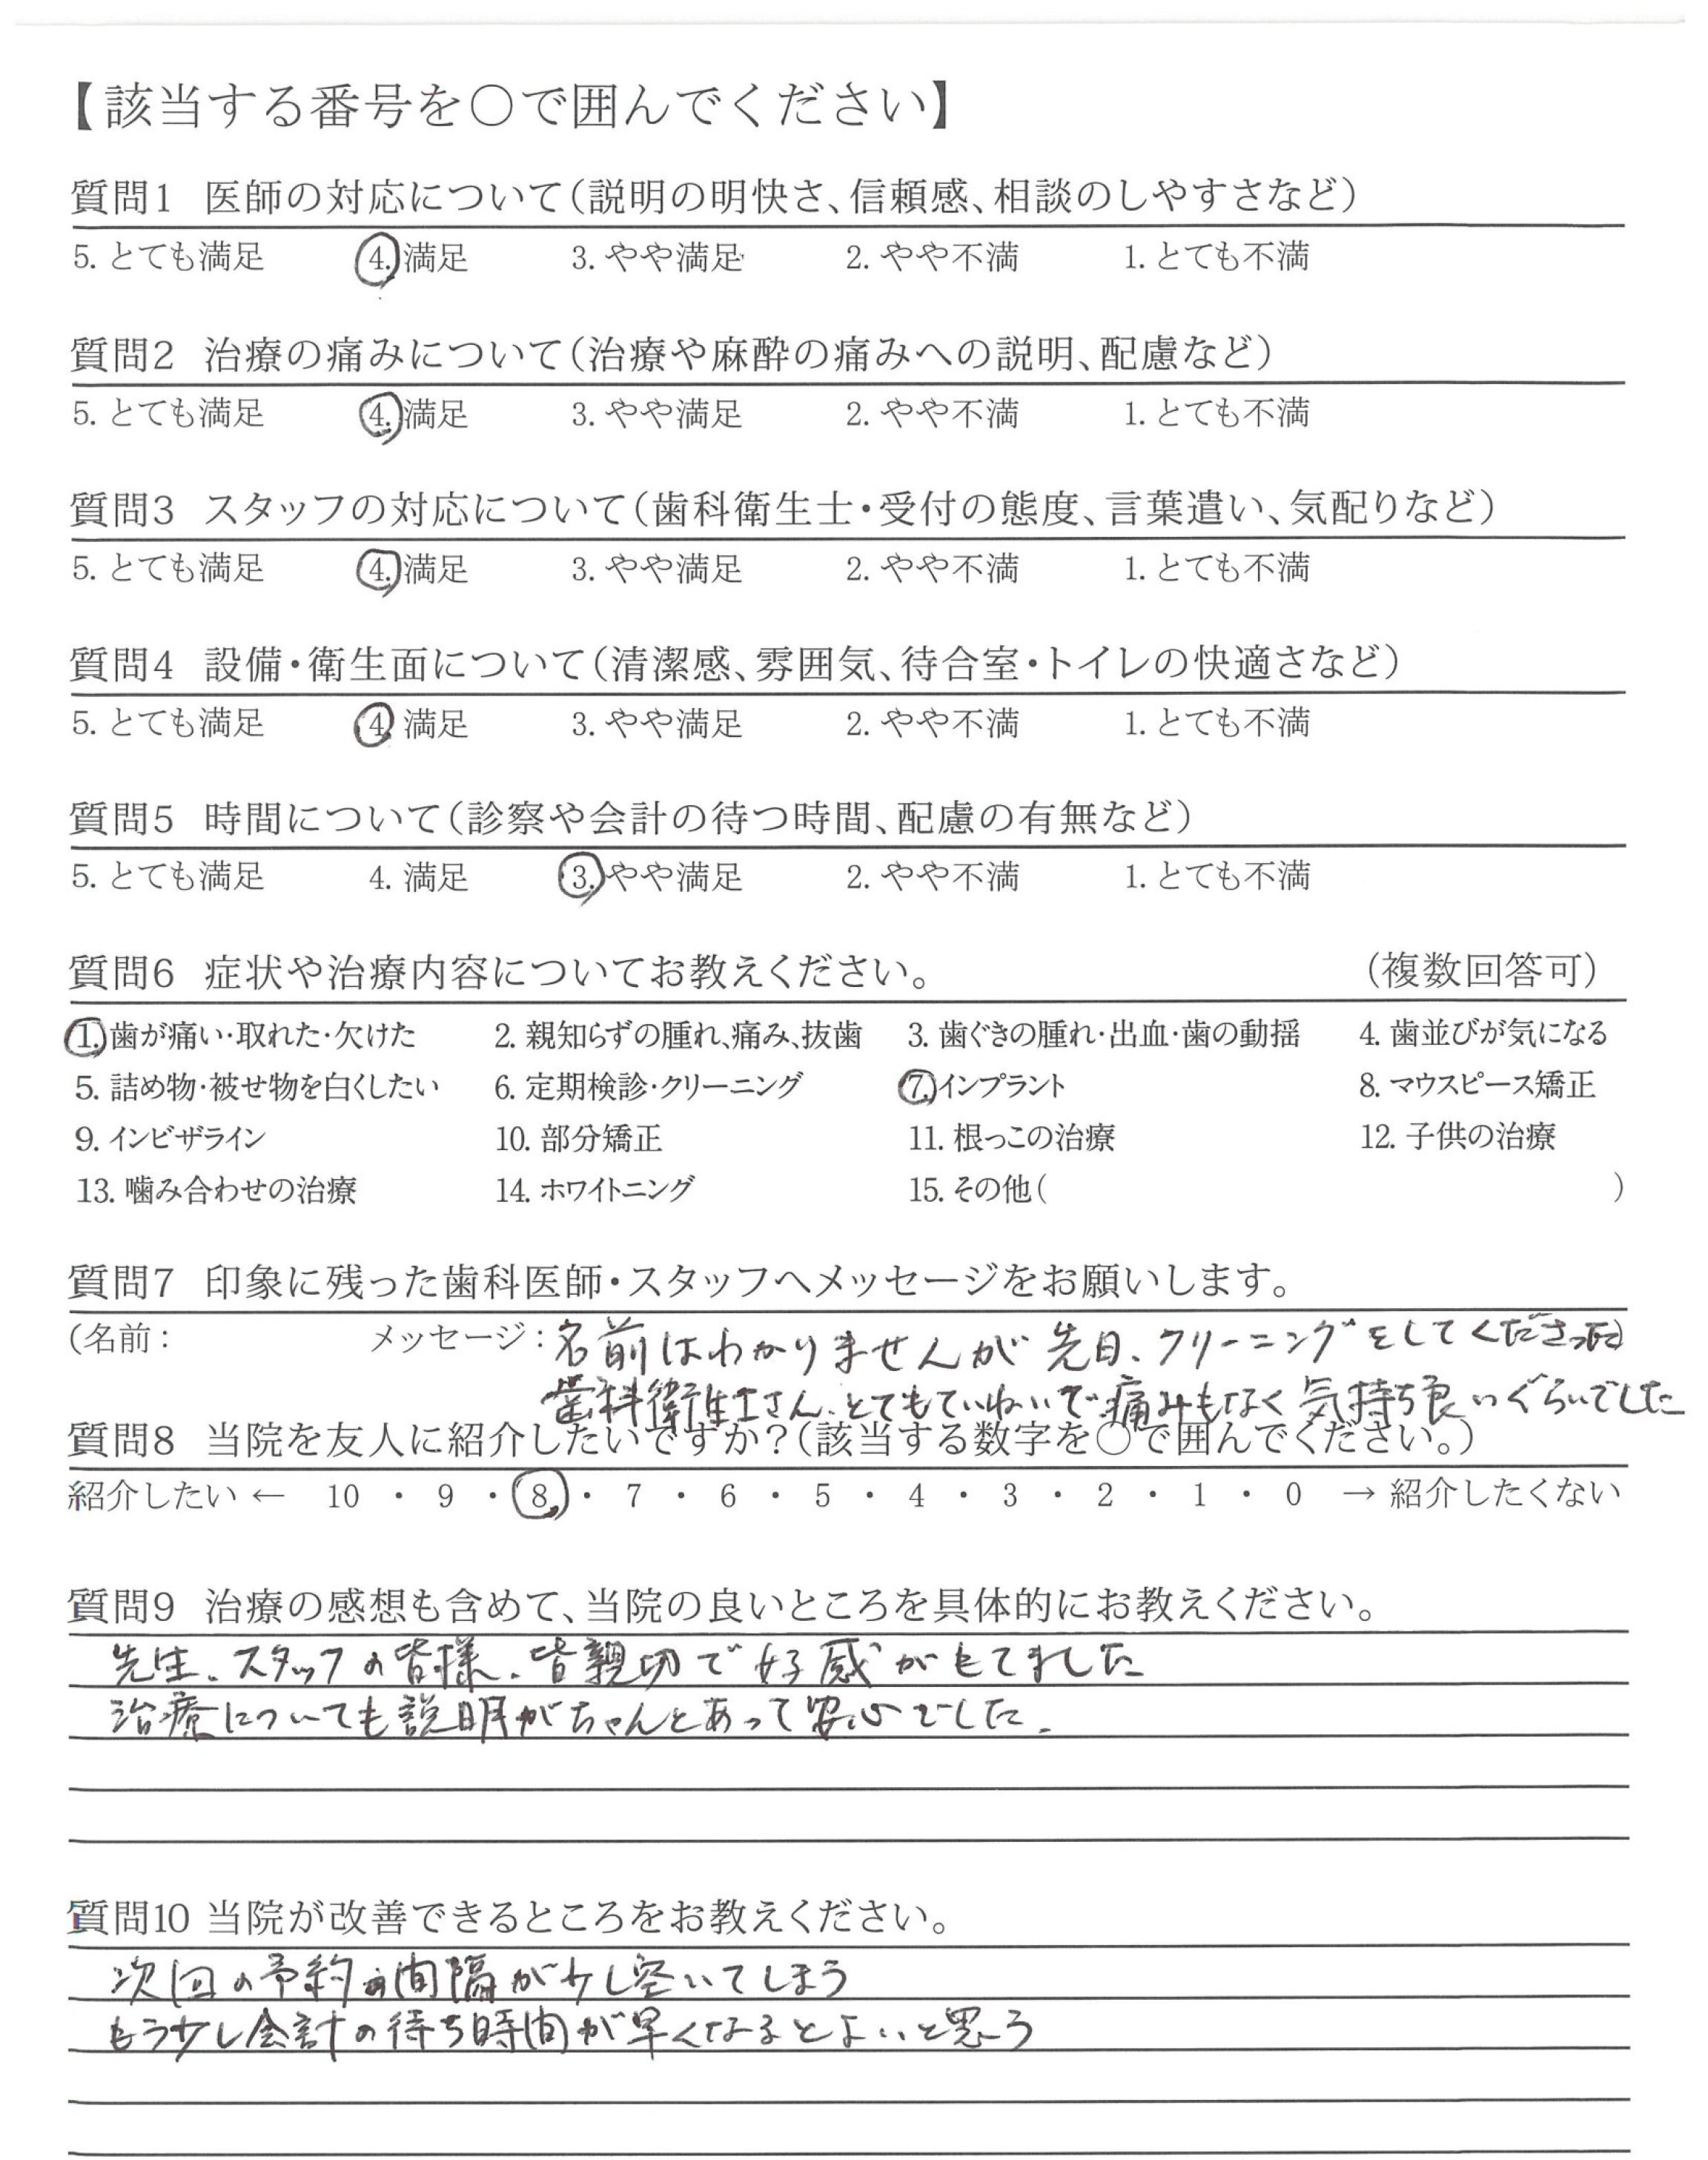 【該当する番号を○で囲んでください】
質問1 医師の対応について(説明の明快さ、信頼感、相談のしやすさなど)
5. とても満足 4. 満足 3. やや満足 2. やや不満 1. とても不満
質問2 治療の痛みについて(治療や麻酔の痛みへの説明、配慮など)
5. とても満足 4. 満足 3. やや満足 2. やや不満 1. とても不満
質問3 スタッフの対応について(歯科衛生士・受付の態度、言葉遣い、気配りなど)
5. とても満足 4. 満足 3. やや満足 2. やや不満 1. とても不満
質問4 設備・衛生面について(清潔感、雰囲気、待合室・トイレの快適さなど)
5. とても満足 4. 満足 3. やや満足 2. やや不満 1. とても不満
質問5 時間について(診察や会計の待つ時間、配慮の有無など)
5. とても満足 4. 満足 3. やや満足 2. やや不満 1. とても不満
質問6 症状や治療内容についてお教えください。 (複数回答可)
1. 歯が痛い・取れた・欠けた 2. 親知らずの腫れ、痛み、抜歯 3. 歯ぐきの腫れ・出血・歯の動揺 4. 歯並びが気になる
5. 詰め物・被せ物を白くしたい 6. 定期検診・クリーニング 7. インプラント 8. マウスピース矯正
9. インビザライン 10. 部分矯正 11. 根っこの治療 12. 子供の治療
13. 噛み合わせの治療 14. ホワイトニング 15. その他( )
質問7 印象に残った歯科医師・スタッフへメッセージをお願いします。
(名前: メッセージ:名前はわかりませんが 先日、クリーニングをしてくださった)
歯科衛生士さん、とてもていねいで痛みもなく気持ち良いぐらいでした
質問8 当院を友人に紹介したいですか?(該当する数字を○で囲んでください。)
紹介したい ← 10 ・ 9 ・ 8 ・ 7 ・ 6 ・ 5 ・ 4 ・ 3 ・ 2 ・ 1 ・ 0 → 紹介したくない
質問9 治療の感想も含めて、当院の良いところを具体的にお教えください。
先生、スタッフの皆様、皆親切で好感がもてました
治療についても説明がちゃんとあって安心でした。
質問10 当院が改善できるところをお教えください。
次回の予約の間隔が少し空いてしまう
もう少し会計の待ち時間が早くなるとよいと思う